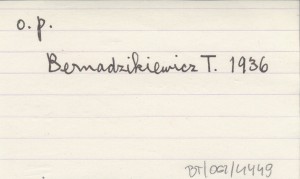 o.p.
Bernadzikiewicz T. 1936
BT/OGZ/4449